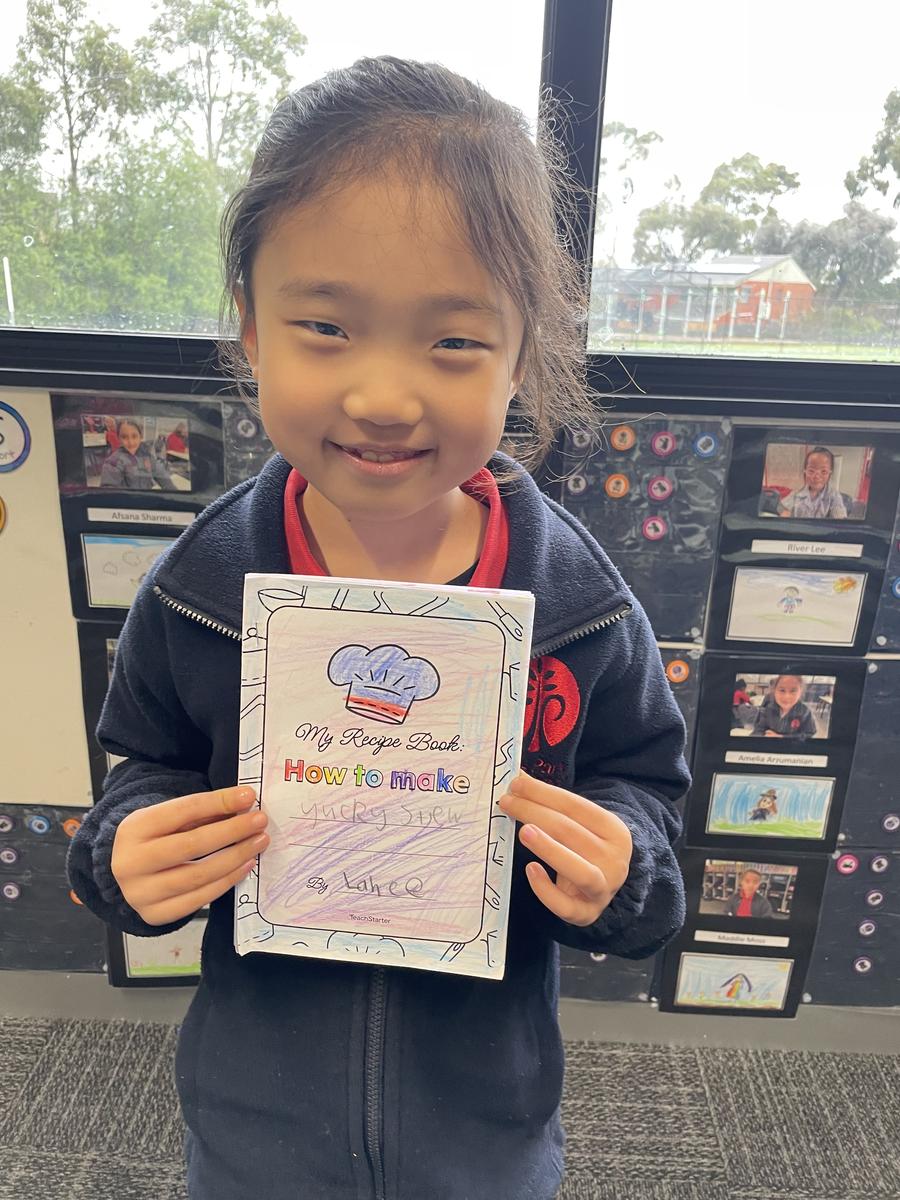 Afsana Sharma
River Lee
Amelia Arzumanian
Maddie Moss
My Recipe Book:
How to make
yucky Stew
By
TeachStarter